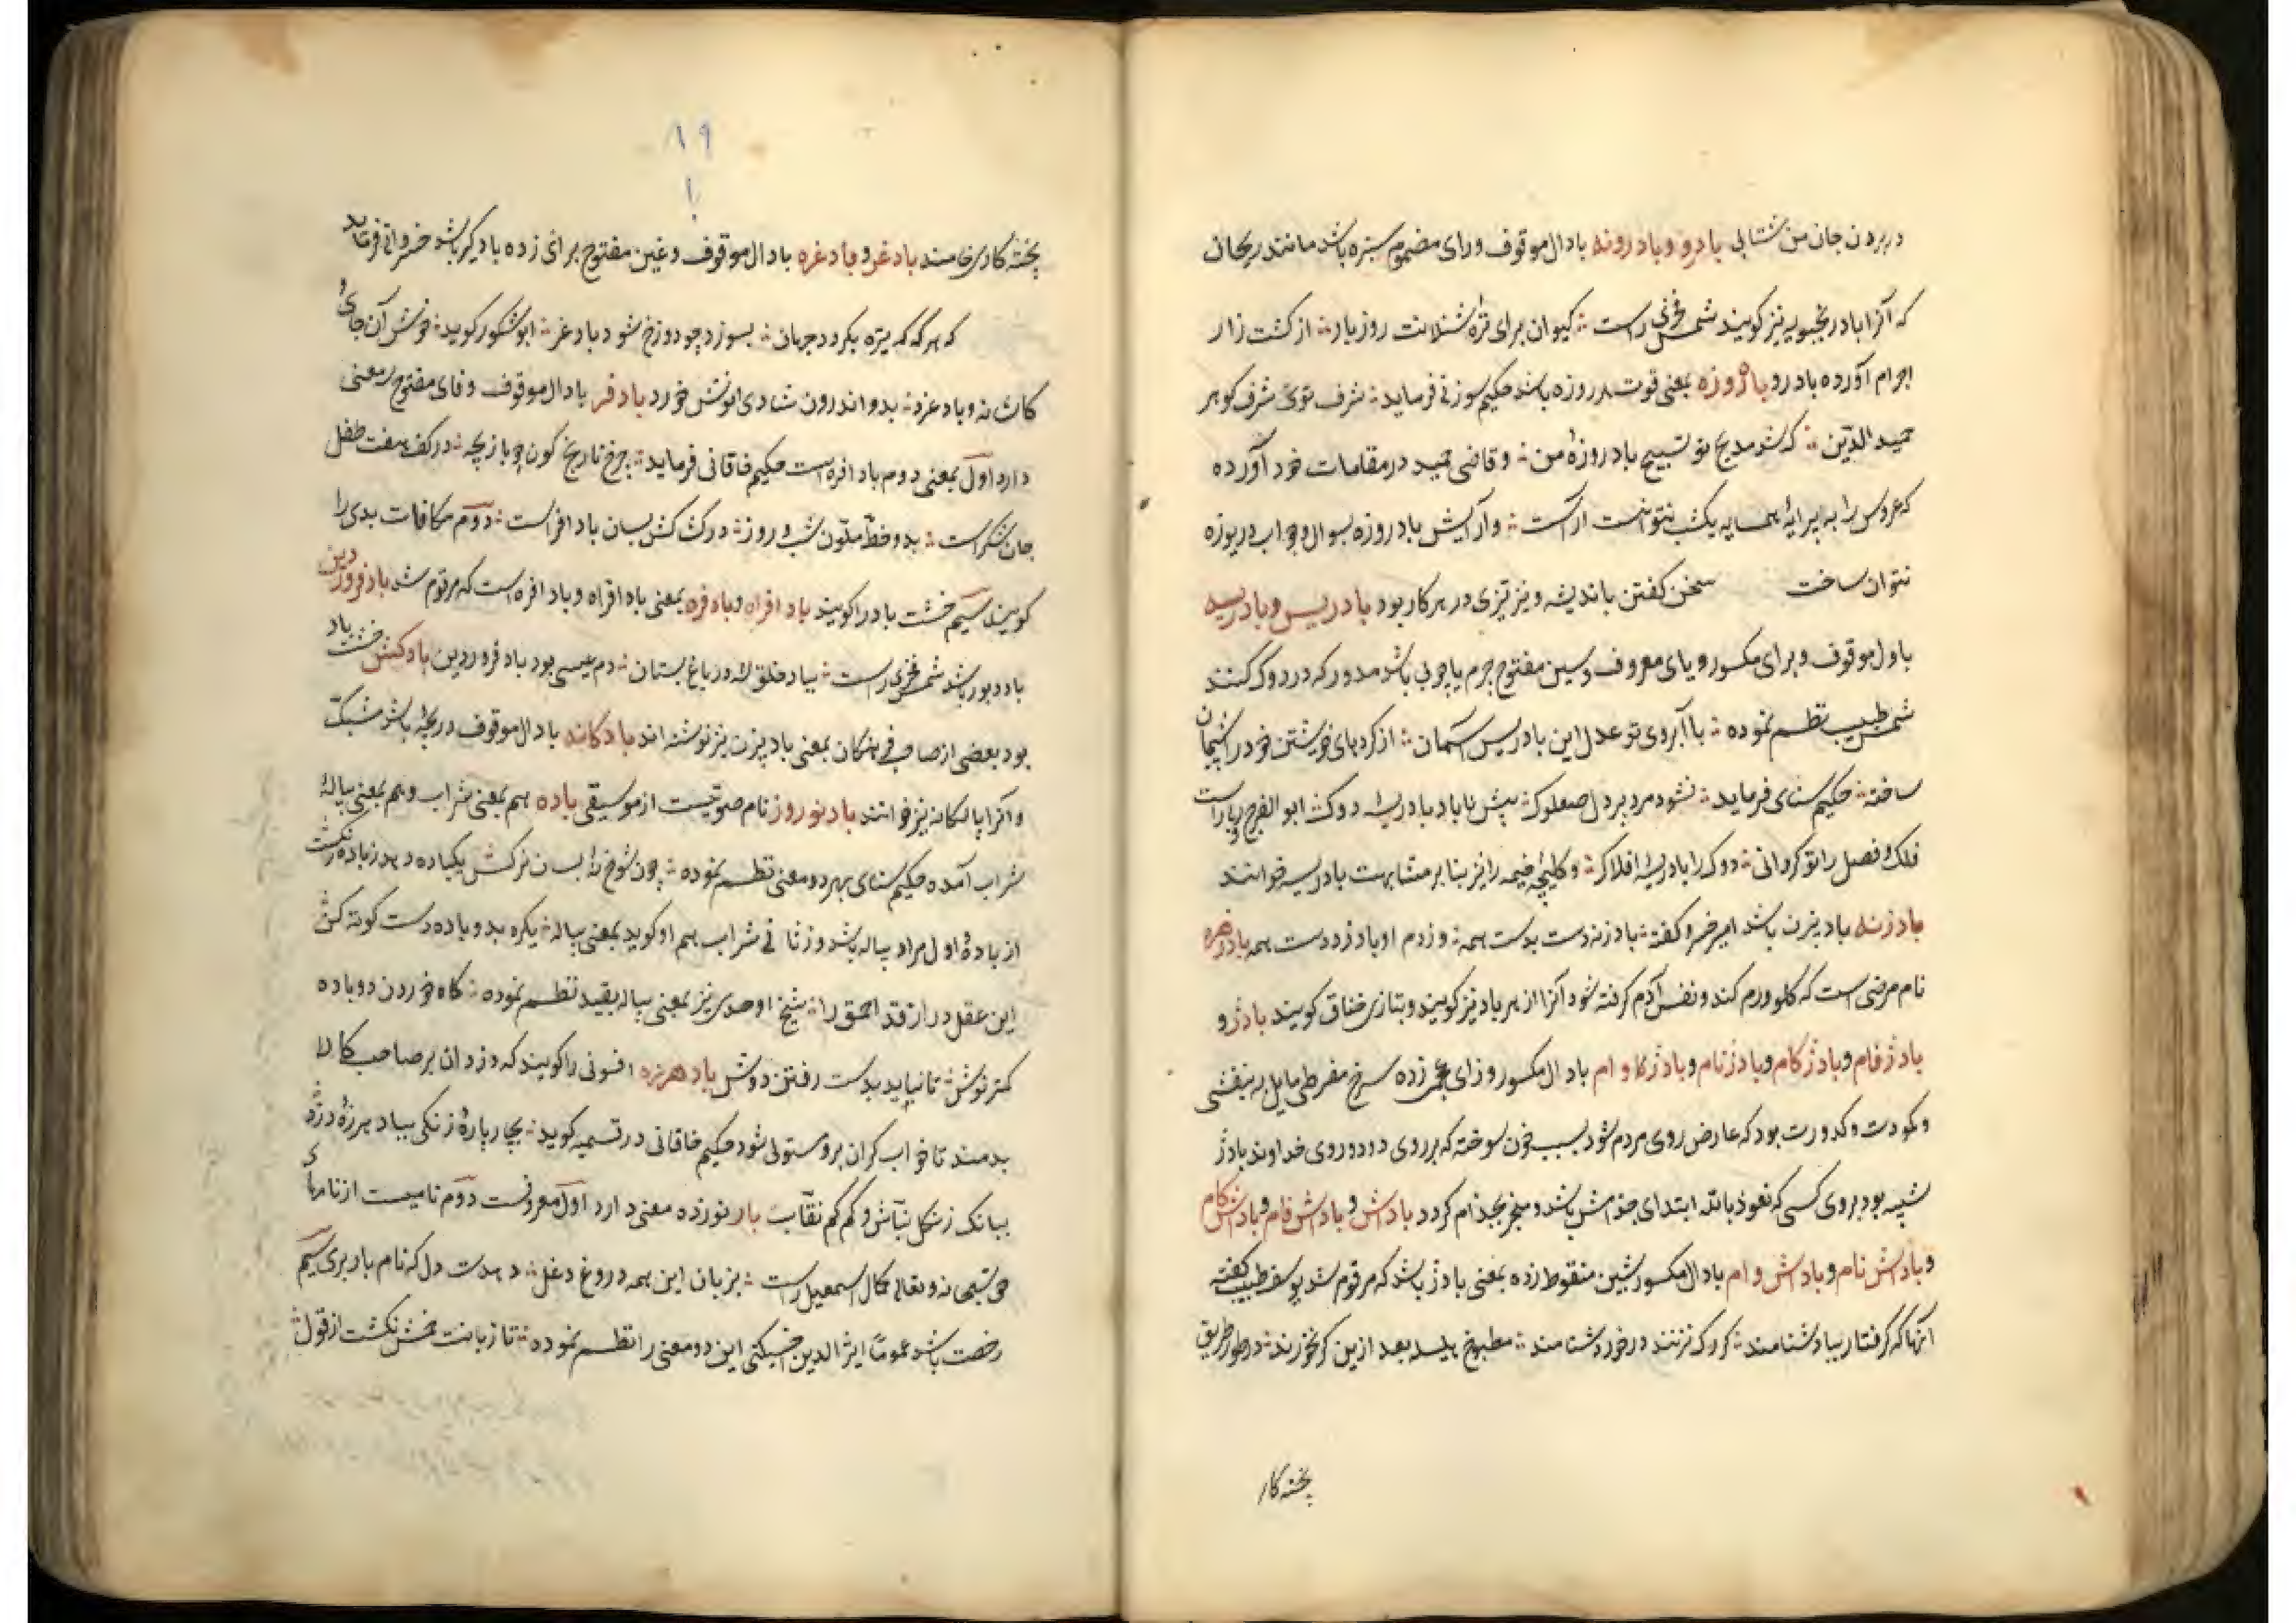 در بردن جان من شتابی بادرو و بادرونه بادال موقوف و رای مضموم سبزه باشد مانند ریحان
که آنرا بادرنجبویه نیز گویند شمس فخری راست کیوان برای تره شنلانت روز بار از کشت زار
اجرام آورده بادرو بادروزه بمعنی قوت هر روزه باشد حکیم سوزنی فرماید شرف توئی شرف گوهر
حمید الدین که شد مدیح تو تسبیح بادروزهٔ من و قاضی حمید در مقامات خود آورده
که عروس را به پیرایهٔ همسایه یکشب نتوانست آراست و آرایش بادروزه بسوال و جواب دریوزه
نتوان ساخت سخن گفتن باندیشه و نیز تیزی در هر کار بود بادریس و بادریسه
باول موقوف و برای مکسور و یای معروف و سین مفتوح چرم یا چوبی باشد مدور که در دوک کنند
شمس طبیب نظم نموده با آبروی تو عدل این بادریس آسمان از کردهای خویشتن خود را پشیمان
ساخته حکیم سنای فرماید نشود مرد پر دل صعلوک پیش ماما و بادریسه دوک ابو الفرج راست
فلک و فصل را تو گردانی دوک را بادریسهٔ افلاک و کلیچهٔ خیمه را نیز بنا بر مشابهت بادریسه خوانند
بادزنه بادبزن باشد امیر خسرو گفته بادزنه دست بدست همه وز دم او باد زدست همه بادزهره
نام مرضی است که گلو ورم کند و نفس آدم گرفته شود آنرا زهرباد نیز گویند و بتازی خناق گویند بادژ و
بادژفام و بادژکام و بادژنام و بادژ وام بادال مکسور و زای عجمی زده سرخی مفرطی مایل به بنفشی
و کمودت و کدورت بود که عارض روی مردم شود بسبب خون سوخته که بر روی دود و روی خداوند بادژ
شبیه بود بروی کسی که نعوذ بالله ابتدای جذامش باشد و منجر بجذام گردد بادش و بادش فام و بادش کام
و بادش نام و بادش وام بادال مکسور شین منقوط زده بمعنی بادژ باشد که مرقوم شد یوسف طبیب گفته
آنها که گرفتار بباد شنامند گر رگ نزنند در خور دشنامند مطبوخ هلیله بعد ازین گر نخورند در طور طریق
پخته کار
۱۹
پخته کاری خامند بادغر و بادغره بادال موقوف و غین مفتوح برای زده بادگیر باشد خسروانی فرماید
که هر گه که تیره بگردد جهان بسوزد چو دوزخ شود بادغر ابوشکور گوید خوش آن جای
کاشانه و بادغرد بدو اندرون شادی نوش خورد بادفر بادال موقوف و فای مفتوح سه معنی
دارد اول بمعنی دوم باد افره است حکیم خاقانی فرماید چرخ نارنج گون چو بازیچه در کف هفت طفل
جان شکر است بدو خط ملون شب و روز در کشاکش بسان باد افر است دوم مکافات بدی را
گویند سیم خشت باد را گویند باد افراه و بادفره بمعنی باد افراه و باد افره است که مرقوم شد باد فروردین
باد دبور باشد شمس فخری راست بباد خلق در باغ بستان دم عیسی بود باد فروردین بادکش خشت باد
بود بعضی از صاحب فرهنگان بمعنی بادبیزن نیز نوشته اند بادکانه بادال موقوف دریچه باشد مشبک
و آنرا پالکانه نیز خوانند باد نوروز نام صوتیست از موسیقی باده هم بمعنی شراب و هم بمعنی پیالهٔ
شراب آمده حکیم سنای بهر دو معنی نظم نموده چون شوخ بسان نرگس یکباده دهد زباده نکست
از بادهٔ اول مراد پیاله باشد و از ثانی شراب هم او گوید بمعنی پیاله یکره بدو باده دست کوته کن
این عقل دراز قد احمق را شیخ اوحدی نیز بمعنی پیاله بقید نظم نموده گاه خوردن دو باده
کمتر نوش تا نباید بدست رفتن دوش باد هرزه افسونی را گویند که دزدان بر صاحب کالا
بدمند تا خواب گران برو مستولی شود حکیم خاقانی در قسمیه گوید بچارپارهٔ زنگی بباد هرزهٔ دزد
ببانک زنگل نباش و کم کم نقاب بار نوزده معنی دارد اول معروفست دوم نامیست از نامهای
حق سبحانه و تعالی کمال اسمعیل راست بر زبان این همه دروغ دغل در دل که نام بار بری سیم
رخصت باشد عموما اثیر الدین اخسیکتی این دو معنی را نظم نموده تا زبانت خمش نگشت از قول